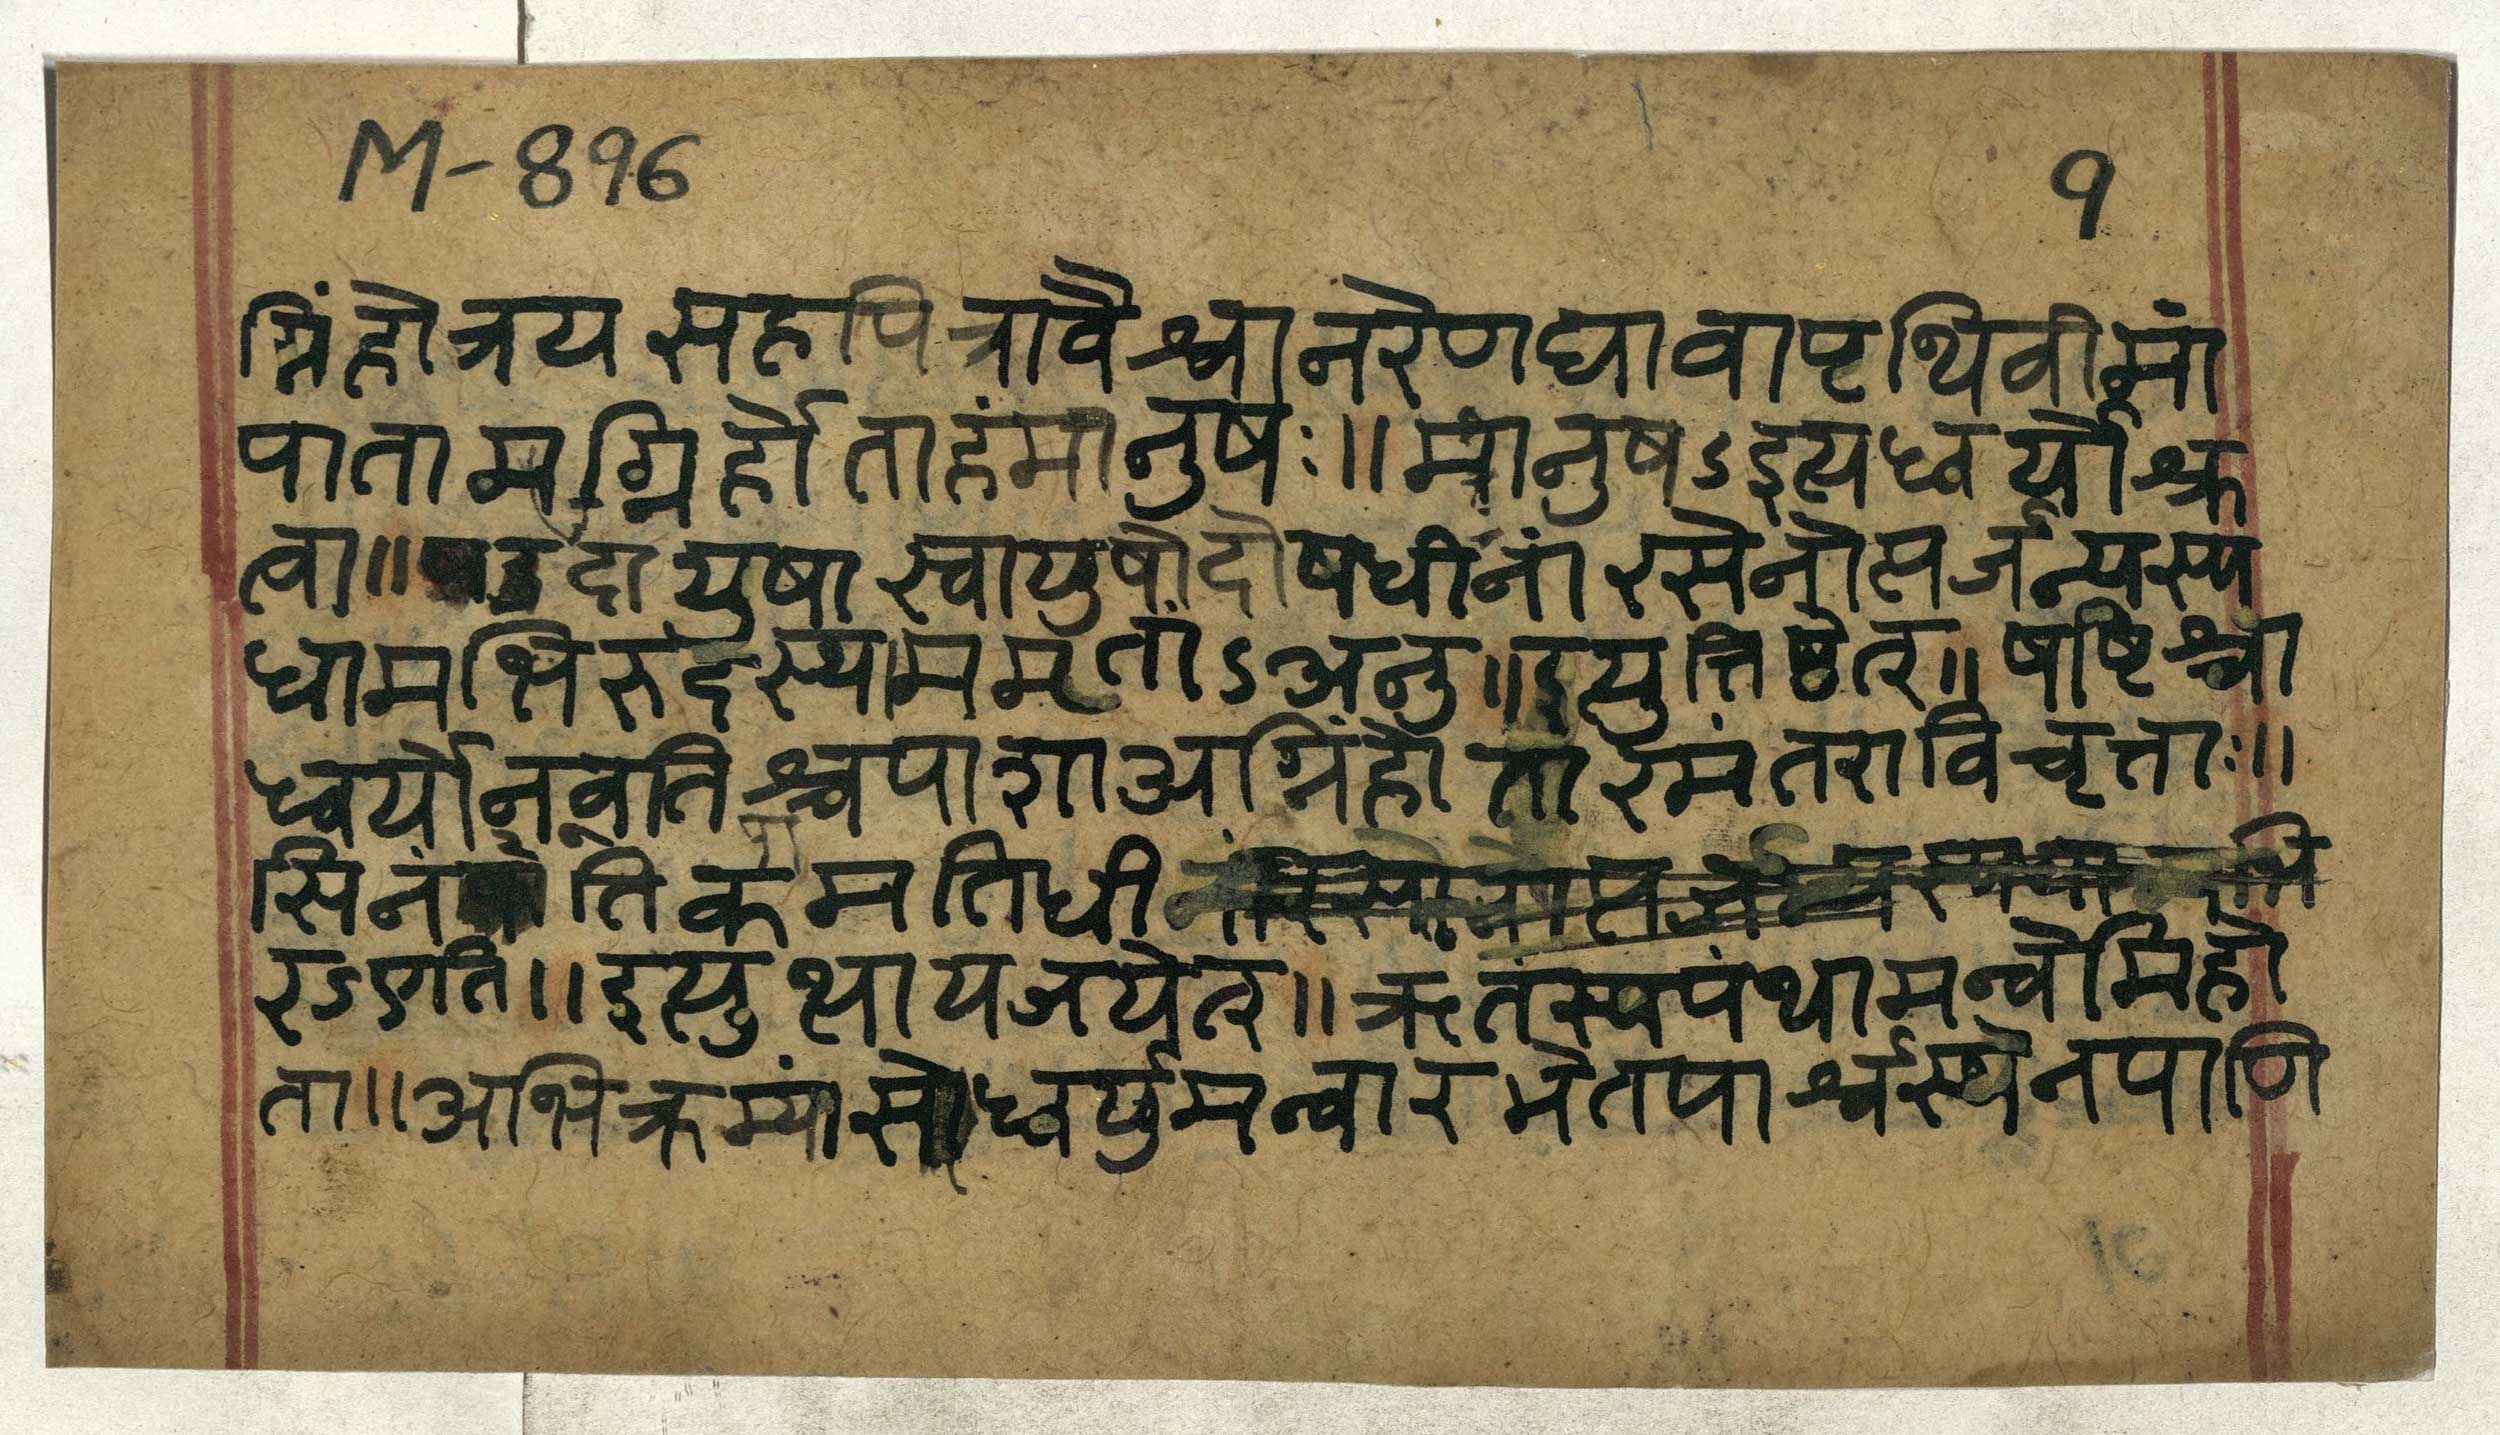 M-896
१
ग्निंहोत्रय सहपित्रावैश्वानरेणद्यावापृथिवीमां
पातामग्निर्होताहंमानुषः॥मानुषऽइत्यध्वर्योश्क्र
त्वा॥ दायुषा स्वायुषोदोषधीनां रसेनोत्पर्जन्यस्य
धामभिरुदस्थाममृतांऽअनु॥इत्युत्तिष्ठेत्॥षष्टिश्चा
ध्वर्योनवतिश्चपाशाअग्निंहोतारमंतराविचृत्ताः॥
सिनंतिकमतिधी
रऽएति॥इत्युत्थायजयेत्॥ऋतस्यपंथामन्वेमिहो
ता॥अभिक्रम्यांसेध्वर्युमन्वारभेतपार्श्वस्थेनपाणि